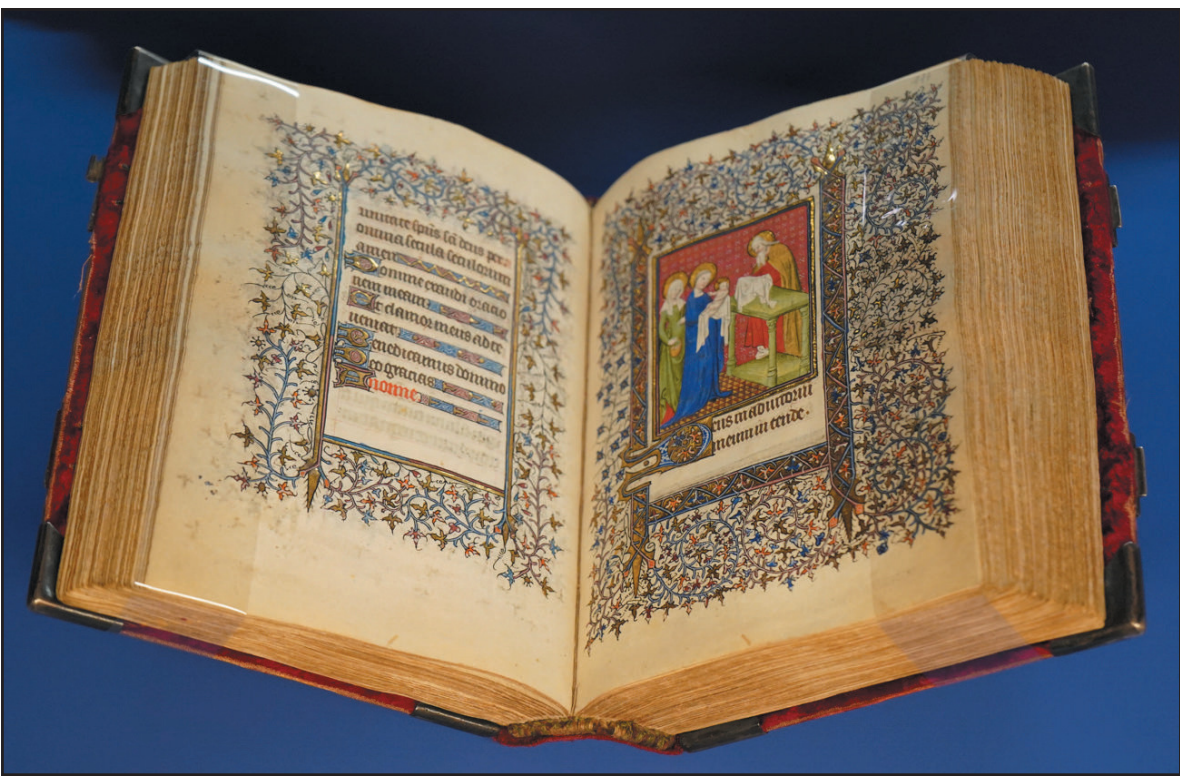 unitate spũs sc̃i deus per
omnia secula seculorum
amen
Domine exaudi oracio
nem meam
Et clamor meus ad te
ueniat
Benedicamus domino
Deo gracias
none
Deus in adiutoriũ
meum in tende.